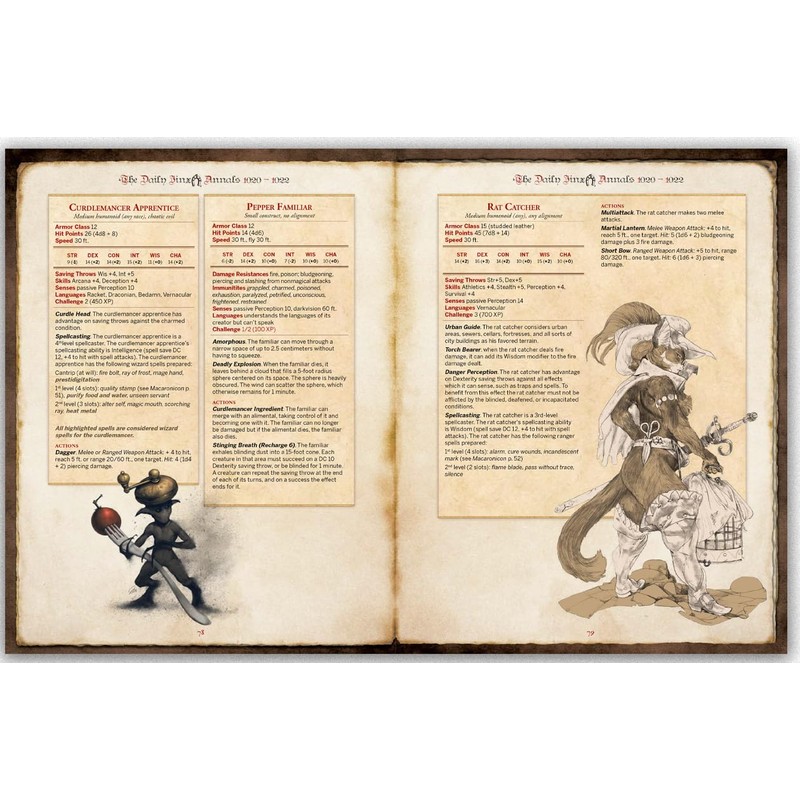 The Daily Jinx Annals 1020 – 1022
Curdlemancer Apprentice
Medium humanoid (any race), chaotic evil
Armor Class 12
Hit Points 26 (4d8 + 8)
Speed 30 ft.
STR DEX CON INT WIS CHA
14 (+2) 14 (+2) 15 (+2) 11 (+0) 14 (+2)
Saving Throws Wis +4, Int +5
Skills Arcana +4, Deception +4
Senses passive Perception 10
Languages Racket, Draconian, Bedarnn, Vernacular
Challenge 2 (450 XP)
Curdle Head. The curdlemancer apprentice has
advantage on saving throws against the charmed
condition.
Spellcasting. The curdlemancer apprentice is a
4th level spellcaster. The curdlemancer apprentice's
spellcasting ability is Intelligence (spell save DC
12, +4 to hit with spell attacks). The curdlemancer
apprentice has the following wizard spells prepared:
Cantrip (at will): fire bolt, ray of frost, mage hand,
prestidigitation
1st level (4 slots): quality stamp (see Macaronicon p.
51), purify food and water, unseen servant
2nd level (3 slots): alter self, magic mouth, scorching
ray, heat metal
All highlighted spells are considered wizard
spells for the curdlemancer.
Actions
Dagger. Melee or Ranged Weapon Attack: +4 to hit,
reach 5 ft., or range 20/60 ft., one target. Hit: 4 (1d4
+ 2) piercing damage.
Pepper Familiar
Small construct, no alignment
Armor Class 12
Hit Points 14 (4d6)
Speed 30 ft., fly 30 ft.
STR DEX CON INT WIS CHA
6 (-2) 14 (+2) 10 (+0) 7 (-2) 10 (+0) 10 (+0)
Damage Resistances fire, poison; bludgeoning,
piercing and slashing from nonmagical attacks
Immunitites grappled, charmed, poisoned,
exhaustion, paralyzed, petrified, unconscious,
frightened, restrained
Senses passive Perception 10, darkvision 60 ft.
Languages understands the languages of its
creator but can't speak
Challenge 1/2 (100 XP)
Amorphous. The familiar can move through a
narrow space of up to 2.5 centimeters without
having to squeeze.
Deadly Explosion. When the familiar dies, it
leaves behind a cloud that fills a 5-foot radius
sphere centered on its space. The sphere is heavily
obscured. The wind can scatter the sphere, which
otherwise remains for 1 minute.
Actions
Curdlemancer Ingredient. The familiar can
merge with an alimental, taking control of it and
becoming one with it. The familiar can no longer
be damaged but if the alimental dies, the familiar
also dies.
Stinging Breath (Recharge 6). The familiar
exhales blinding dust into a 15-foot cone. Each
creature in that area must succeed on a DC 10
Dexterity saving throw, or be blinded for 1 minute.
A creature can repeat the saving throw at the end
of each of its turns, and on a success the effect
ends for it.
78
The Daily Jinx Annals 1020 – 1022
Rat Catcher
Medium humanoid (any), any alignment
Armor Class 15 (studded leather)
Hit Points 45 (7d8 + 14)
Speed 30 ft.
STR DEX CON INT WIS CHA
14 (+2) 16 (+3) 14 (+2) 10 (+0) 15 (+2)
Saving Throws Str+5, Dex+5
Skills Athletics +4, Stealth +5, Perception +4,
Survival +4
Senses passive Perception 14
Languages Vernacular
Challenge 3 (700 XP)
Urban Guide. The rat catcher considers urban
areas, sewers, cellars, fortresses, and all sorts of
city buildings as his favored terrain.
Torch Bearer. when the rat catcher deals fire
damage, it can add its Wisdom modifier to the fire
damage dealt.
Danger Perception. The rat catcher has advantage
on Dexterity saving throws against all effects
which it can sense, such as traps and spells. To
benefit from this, the rat catcher must not be
afflicted by the blinded, deafened, or incapacitated
conditions.
Spellcasting. The rat catcher is a 3rd-level
spellcaster. The rat catcher's spellcasting ability
is Wisdom (spell save DC 12, +4 to hit with spell
attacks). The rat catcher has the following ranger
spells prepared:
1st level (4 slots): alarm, cure wounds, incandescent
mark (see Macaronicon p.52)
2nd level (2 slots): flame blade, pass without trace,
silence
Actions
Multiattack. The rat catcher makes two melee
attacks.
Martial Lantern. Melee Weapon Attack: +4 to hit,
reach 5 ft., one target. Hit: 5 (1d6 + 2) bludgeoning
damage plus 3 fire damage.
Short Bow. Ranged Weapon Attack: +5 to hit, range
80/320 ft., one target. Hit: 6 (1d6 + 3) piercing
damage.
79